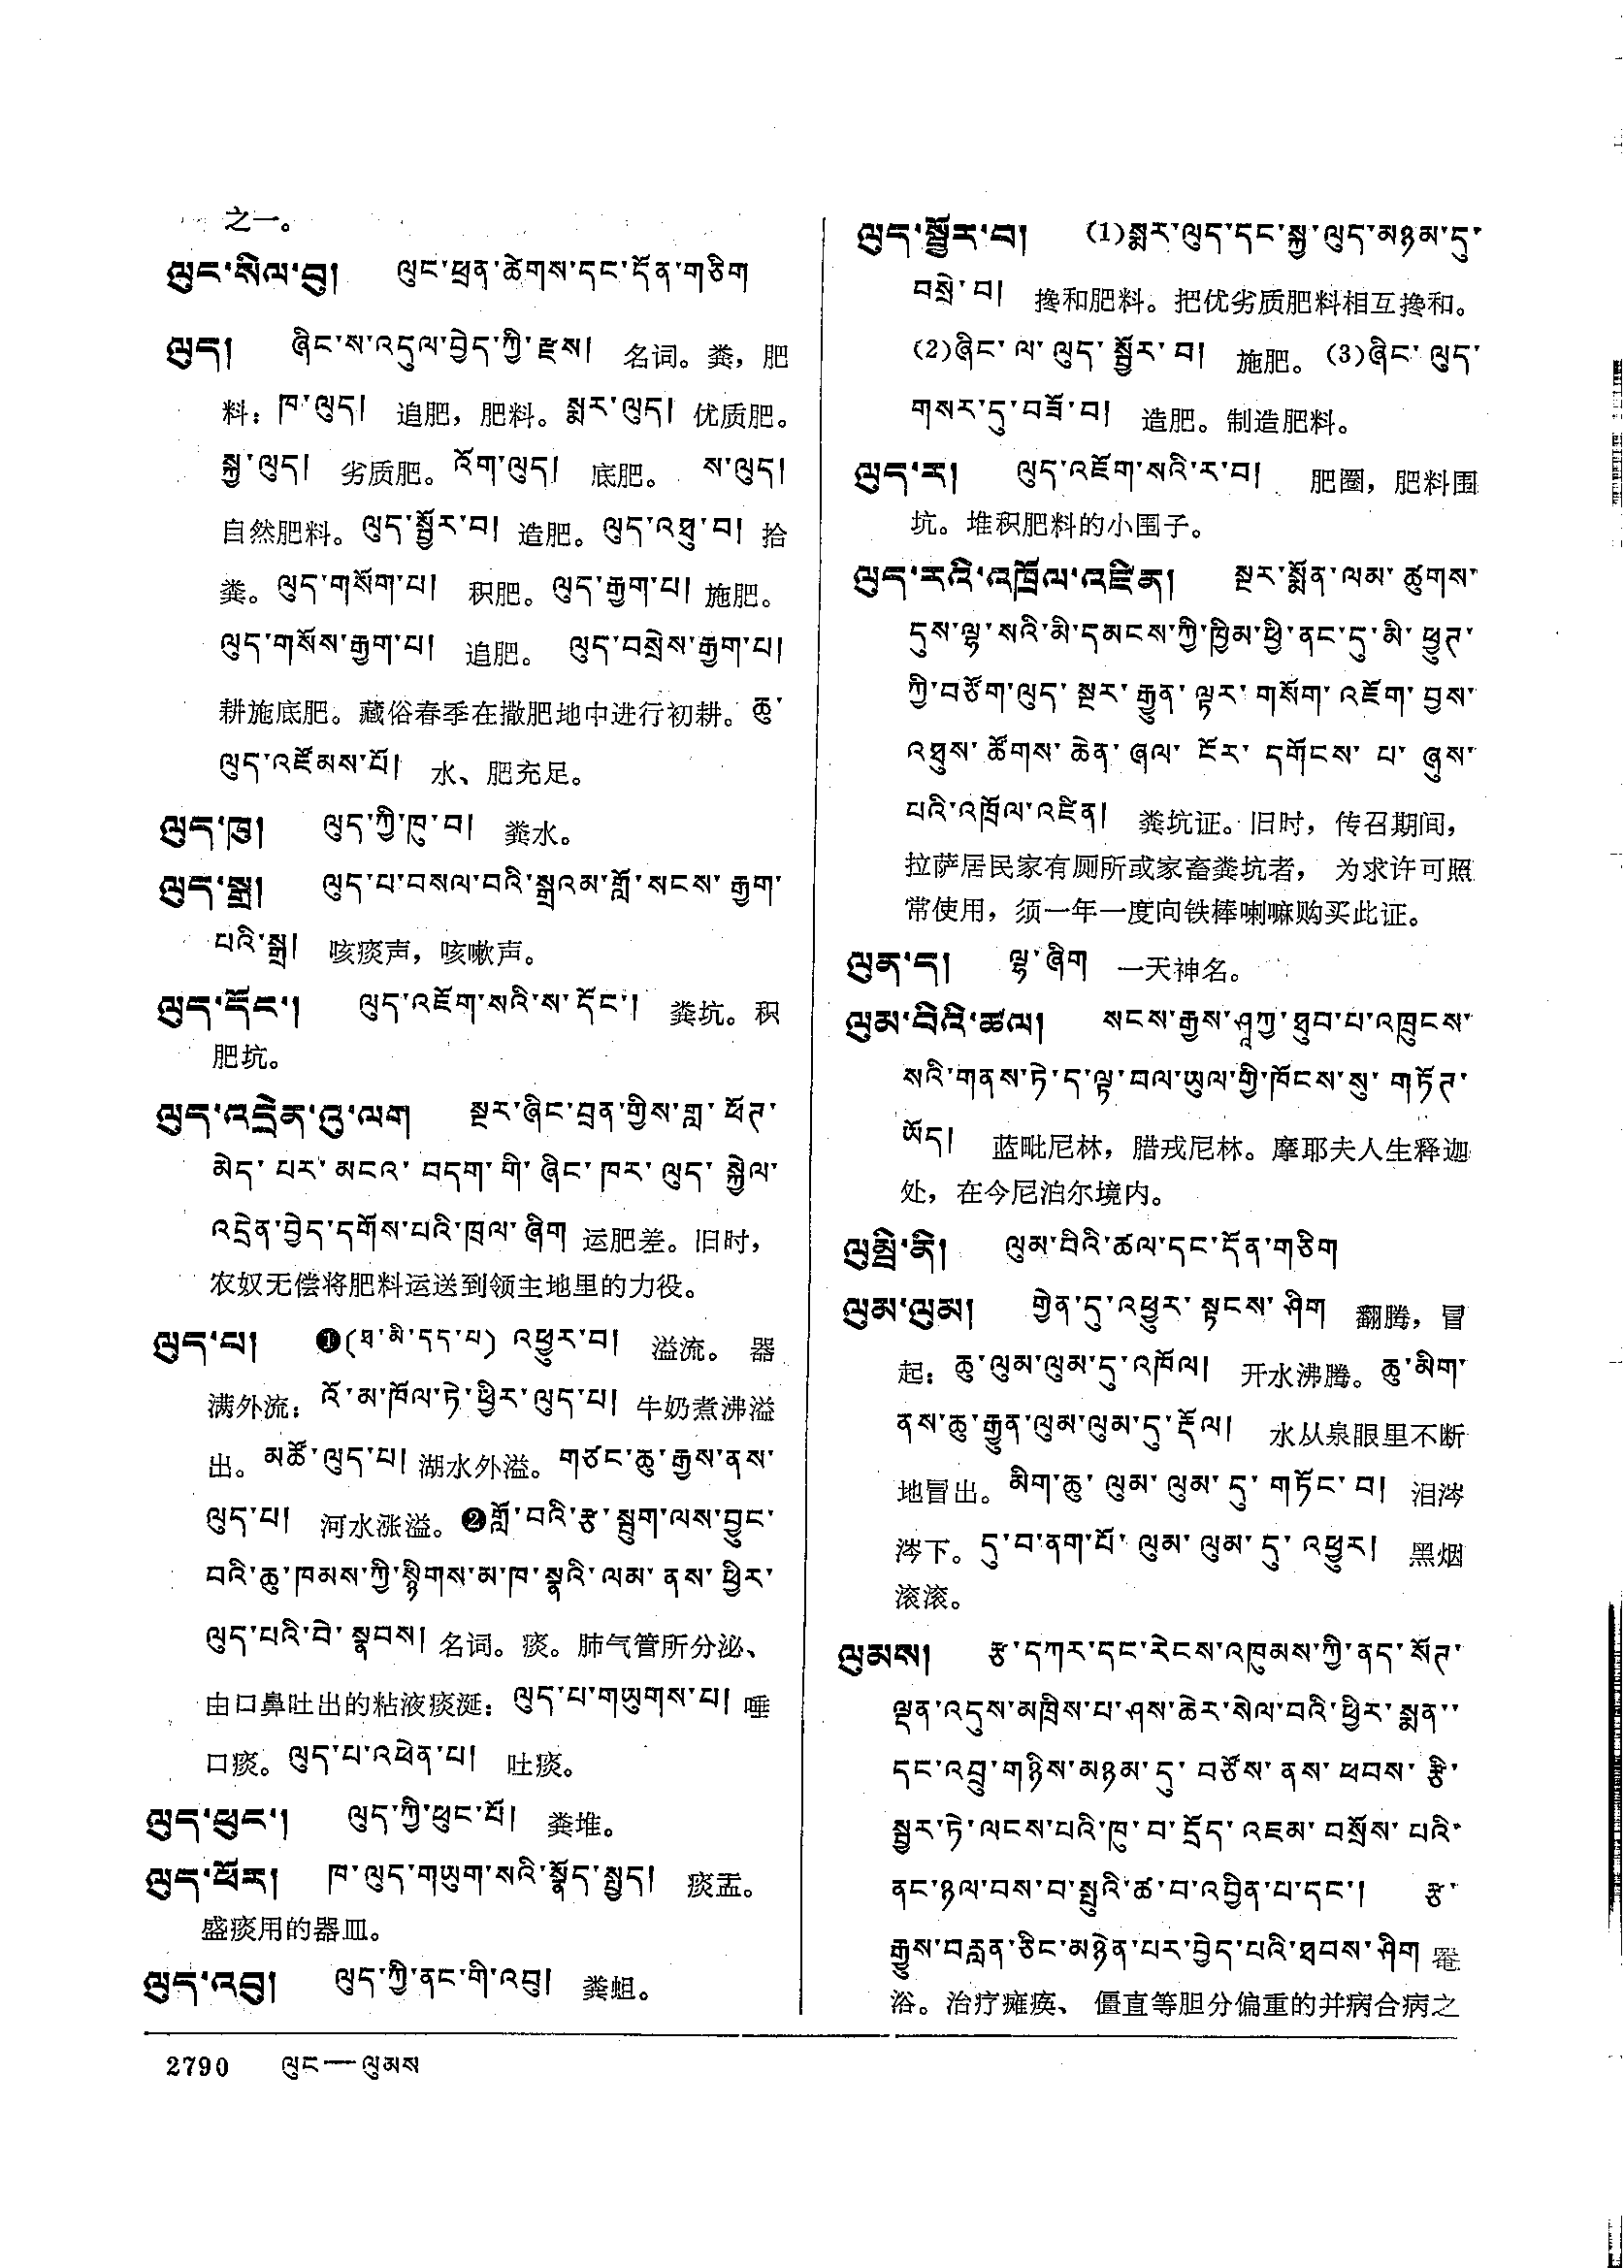 之一。
ལུང་སིལ་བུ། ལུང་ཕྲན་ཚེགས་དང་དོན་གཅིག
ལུད། ཞིང་ས་འདུལ་བྱེད་ཀྱི་རྫས། 名词。粪，肥
料：ཁ་ལུད། 追肥，肥料。སྨར་ལུད། 优质肥。
སྐྱ་ལུད། 劣质肥。འོག་ལུད། 底肥。 ས་ལུད།
自然肥料。ལུད་སྦྱོར་བ། 造肥。ལུད་འཐུ་བ། 拾
粪。ལུད་གསོག་པ། 积肥。ལུད་རྒྱག་པ། 施肥。
ལུད་གསོས་རྒྱག་པ། 追肥。 ལུད་བསྲེས་རྒྱག་པ།
耕施底肥。藏俗春季在撒肥地中进行初耕。ཆུ་
ལུད་འཛོམས་པོ། 水、肥充足。
ལུད་ཁུ། ལུད་ཀྱི་ཁུ་བ། 粪水。
ལུད་སྒྲ། ལུད་པ་བསལ་བའི་སྒྲའམ་གློ་སངས་རྒྱག་
པའི་སྒྲ། 咳痰声，咳嗽声。
ལུད་དོང་། ལུད་འཇོག་སའི་ས་དོང་། 粪坑。积
肥坑。
ལུད་འདྲེན་འུ་ལག སྔར་ཞིང་བྲན་གྱིས་གླ་ཕོཊ་
མེད་པར་མངའ་བདག་གི་ཞིང་ཁར་ལུད་སྐྱེལ་
འདྲེན་བྱེད་དགོས་པའི་ཁྲལ་ཞིག 运肥差。旧时，
农奴无偿将肥料运送到领主地里的力役。
ལུད་པ། ❶(ཐ་མི་དད་པ) འཕྱུར་བ། 溢流。 器
满外流：འོ་མ་ཁོལ་ཏེ་ཕྱིར་ལུད་པ། 牛奶煮沸溢
出。མཚོ་ལུད་པ། 湖水外溢。གཙང་ཆུ་རྒྱས་ནས་
ལུད་པ། 河水涨溢。❷གློ་བའི་རྩ་སྦུག་ལས་བྱུང་
བའི་ཆུ་ཁམས་ཀྱི་སྙིགས་མ་ཁ་སྣའི་ལམ་ནས་ཕྱིར་
ལུད་པའི་བེ་སྣབས། 名词。痰。肺气管所分泌、
由口鼻吐出的粘液痰涎：ལུད་པ་གཡུགས་པ། 唾
口痰。ལུད་པ་འཕེན་པ། 吐痰。
ལུད་ཕུང་། ལུད་ཀྱི་ཕུང་པོ། 粪堆。
ལུད་ཕོར། ཁ་ལུད་གཡུག་སའི་སྣོད་སྤྱད། 痰盂。
盛痰用的器皿。
ལུད་འབུ། ལུད་ཀྱི་ནང་གི་འབུ། 粪蛆。
ལུད་སྦྱོར་བ། (1)སྨར་ལུད་དང་སྐྱ་ལུད་མཉམ་དུ་
བསྲེ་བ། 搀和肥料。把优劣质肥料相互搀和。
(2)ཞིང་ལ་ལུད་སྦྱོར་བ། 施肥。(3)ཞིང་ལུད་
གསར་དུ་བཟོ་བ། 造肥。制造肥料。
ལུད་ར། ལུད་འཇོག་སའི་ར་བ། 肥圈，肥料围
坑。堆积肥料的小围子。
ལུད་རའི་འཁྲོལ་འཛིན། སྔར་སྨོན་ལམ་ཚུགས་
དུས་ལྷ་སའི་མི་དམངས་ཀྱི་ཁྱིམ་ཕྱི་ནང་དུ་མི་ཕྱུཊ་
ཀྱི་བཙོག་ལུད་སྔར་རྒྱུན་ལྟར་གསོག་འཇོག་བྱས་
འཐུས་ཚོགས་ཆེན་ཞལ་ངོར་དགོངས་པ་ཞུས་
པའི་འཁྲོལ་འཛིན། 粪坑证。旧时，传召期间，
拉萨居民家有厕所或家畜粪坑者， 为求许可照
常使用，须一年一度向铁棒喇嘛购买此证。
ལུན་ད། ལྷ་ཞིག 一天神名。
ལུམ་བིའི་ཚལ། སངས་རྒྱས་ཤཱཀྱ་ཐུབ་པ་འཁྲུངས་
སའི་གནས་ཏེ་ད་ལྟ་བལ་ཡུལ་གྱི་ཁོངས་སུ་གཏོཊ་
ཡོད། 蓝毗尼林，腊戎尼林。摩耶夫人生释迦
处，在今尼泊尔境内。
ལུམྦི་ནི། ལུམ་བིའི་ཚལ་དང་དོན་གཅིག
ལུམ་ལུམ། གྱེན་དུ་འཕྱུར་སྟངས་ཤིག 翻腾，冒
起：ཆུ་ལུམ་ལུམ་དུ་འཁོལ། 开水沸腾。ཆུ་མིག་
ནས་ཆུ་རྒྱུན་ལུམ་ལུམ་དུ་རྡོལ། 水从泉眼里不断
地冒出。མིག་ཆུ་ལུམ་ལུམ་དུ་གཏོང་བ། 泪涔
涔下。དུ་བ་ནག་པོ་ལུམ་ལུམ་དུ་འཕྱུར། 黑烟
滚滚。
ལུམས། རྩ་དཀར་དང་རེངས་འཁུམས་ཀྱི་ནད་སོཊ་
ལྡན་འདུས་མཁྲིས་པ་ཤས་ཆེར་སེལ་བའི་ཕྱིར་སྨན་
དང་འབྲུ་གཉིས་མཉམ་དུ་བཙོས་ནས་ཕབས་རྩི་
སྦྱར་ཏེ་ལངས་པའི་ཁུ་བ་དྲོད་འཇམ་བསྲོས་པའི་
ནང་ཉལ་བས་བ་སྤུའི་ཚ་བ་འབྱིན་པ་དང་། རྩ་
རྒྱུས་བརླན་ཅིང་མཉེན་པར་བྱེད་པའི་ཐབས་ཤིག 罨
浴。治疗瘫痪、 僵直等胆分偏重的并病合病之
2790 ལུང—ལུམས